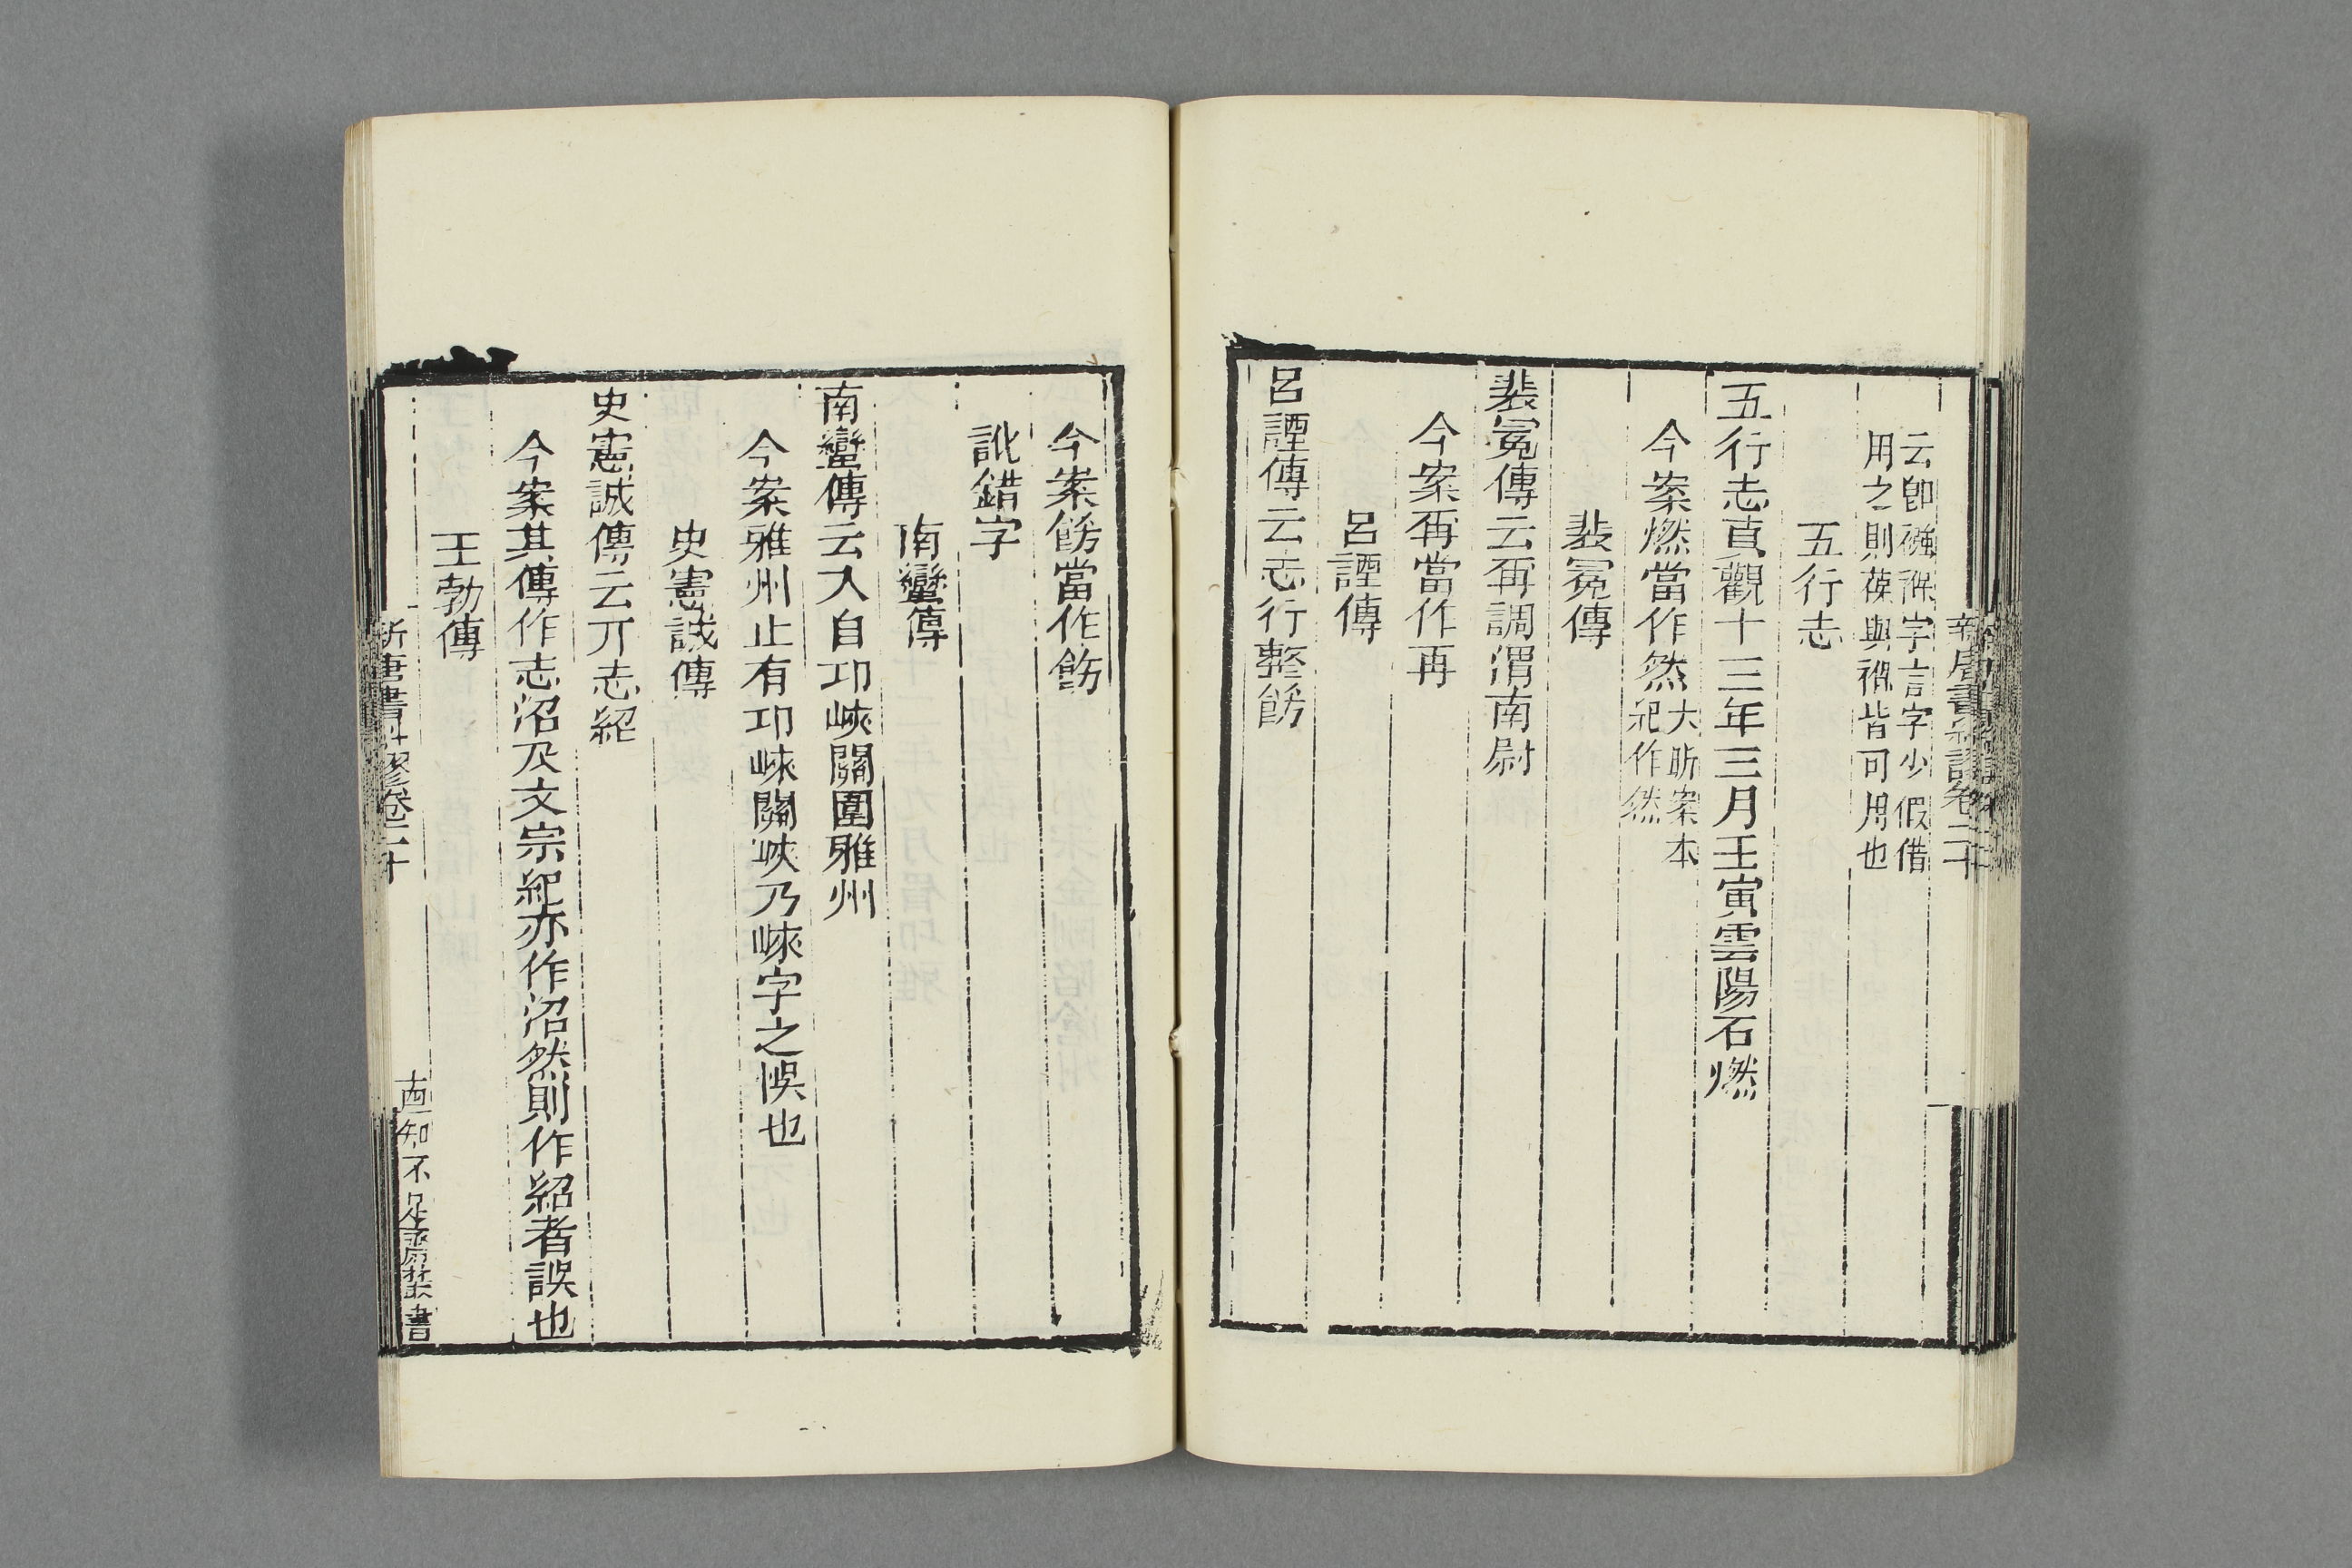 云卽襁褓字言字少假借
用之則葆與褓皆可用也
五行志
五行志貞觀十三年三月壬寅雲陽石燃
今案燃當作然
大昕案本
紀作然
裴冕傳
裴冕傳云再調渭南尉
今案再當作再
呂諲傳
呂諲傳云志行整飭
新唐書糾謬卷二十
今案飭當作飭
訛錯字
南蠻傳
南蠻傳云入自邛峽關圍雅州
今案雅州止有邛崍關峽乃崍字之悞也
史憲誠傳
史憲誠傳云亓志紹
今案其傳作志沼及文宗紀亦作沼然則作紹者誤也
王勃傳
新唐書糾謬卷二十
知不足齋叢書